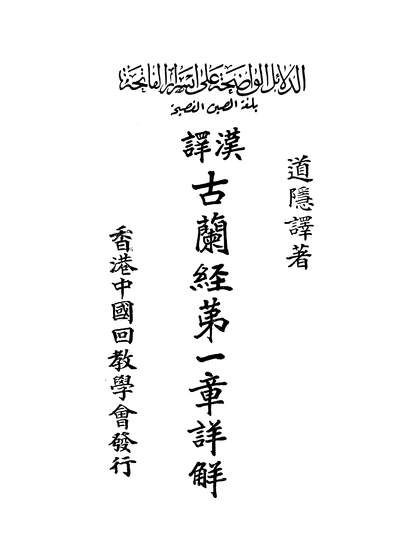 الدلائل الواضحة على أسرار الفاتحة
بلغة الصين الفصيحة
道隱譯著
漢譯
古蘭經第一章詳解
香港中國回教學會發行